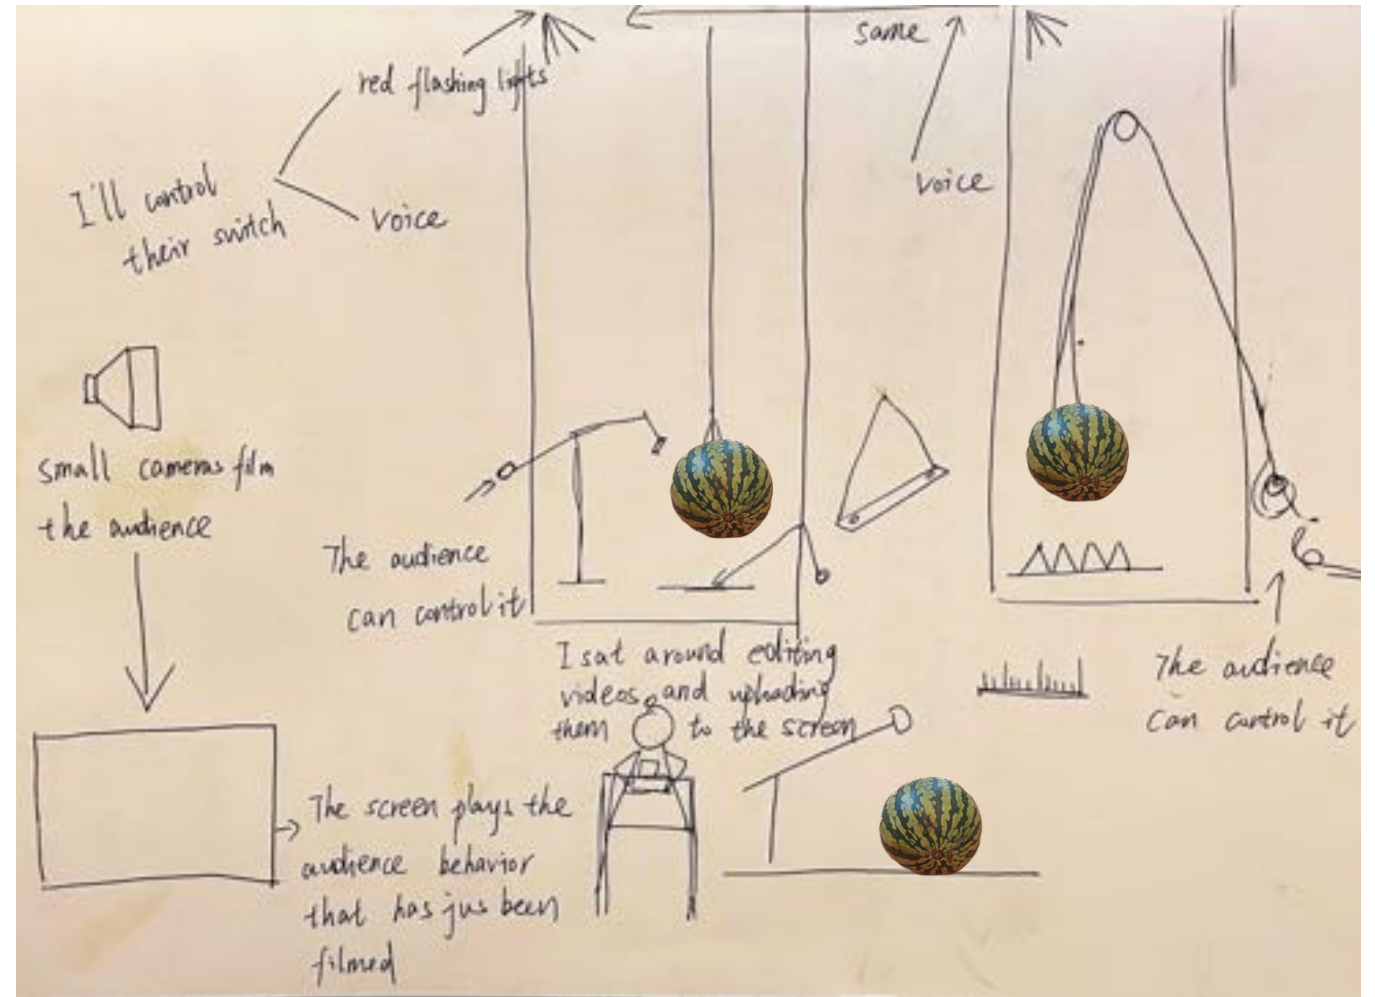 red flashing lights
I'll control
their switch
voice
same
voice
small cameras film
the audience
The audience
can control it
I sat around editing
videos and uploading
them to the screen
The audience
can control it
The screen plays the
audience behavior
that has jus been
filmed